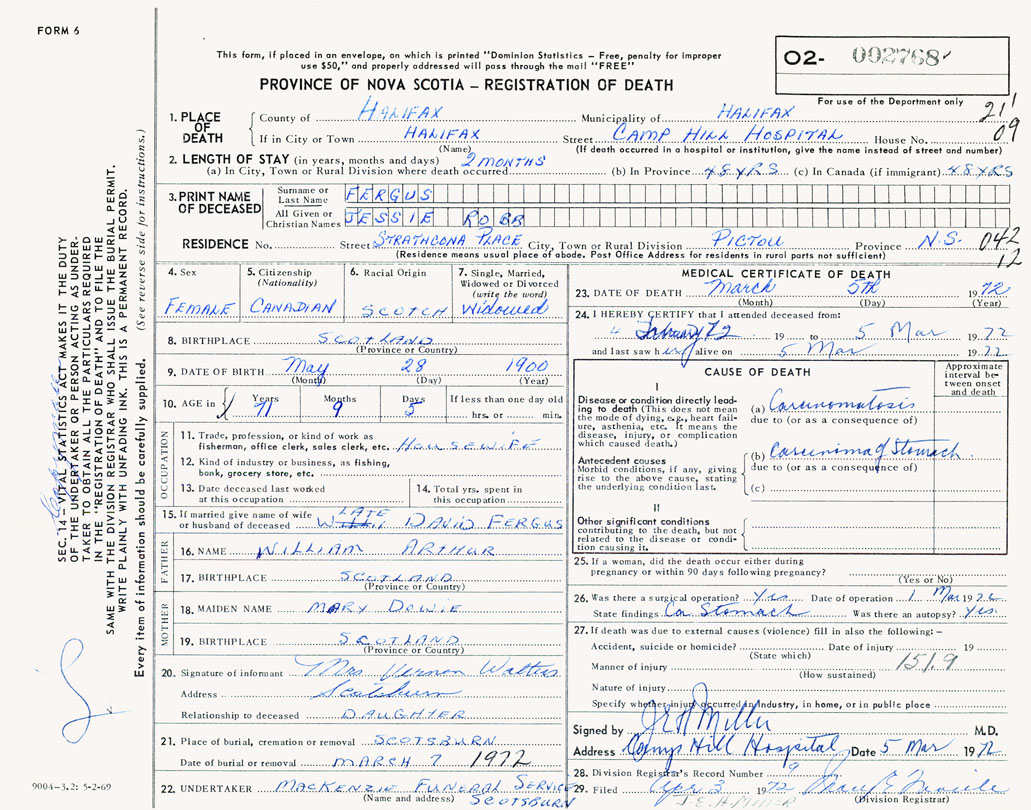 FORM 6
This form, if placed in an envelope, on which is printed "Dominion Statistics – Free, penalty for improper
use $50," and properly addressed will pass through the mail "FREE"
PROVINCE OF NOVA SCOTIA – REGISTRATION OF DEATH
02- 002768
For use of the Department only
21
09
1. PLACE OF DEATH
County of HALIFAX Municipality of HALIFAX
If in City or Town HALIFAX Street CAMP HILL HOSPITAL House No.
(Name) (If death occurred in a hospital or institution, give the name instead of street and number)
2. LENGTH OF STAY (in years, months and days) 2 MONTHS
(a) In City, Town or Rural Division where death occurred (b) In Province 48 YRS (c) In Canada (if immigrant) 48 YRS
3. PRINT NAME OF DECEASED
Surname or Last Name FERGUS
All Given or Christian Names JESSIE ROBB
RESIDENCE No. Street STRATHCONA PLACE City, Town or Rural Division PICTOU Province N.S. 042
(Residence means usual place of abode. Post Office Address for residents in rural parts not sufficient) 12
4. Sex FEMALE
5. Citizenship (Nationality) CANADIAN
6. Racial Origin SCOTCH
7. Single, Married, Widowed or Divorced (write the word) Widowed
8. BIRTHPLACE SCOTLAND
(Province or Country)
9. DATE OF BIRTH May 28 1900
(Month) (Day) (Year)
10. AGE in Years 71 Months 9 Days 5 If less than one day old
hrs. or min.
OCCUPATION
11. Trade, profession, or kind of work as
fisherman, office clerk, sales clerk, etc. HOUSEWIFE
12. Kind of industry or business, as fishing,
bank, grocery store, etc.
13. Date deceased last worked
at this occupation
14. Total yrs. spent in
this occupation
15. If married give name of wife
or husband of deceased LATE DAVID FERGUS
FATHER
16. NAME WILLIAM ARTHUR
17. BIRTHPLACE SCOTLAND
(Province or Country)
MOTHER
18. MAIDEN NAME MARY DOWIE
19. BIRTHPLACE SCOTLAND
(Province or Country)
20. Signature of informant Mrs Vernon Walters
Address Scotsburn
Relationship to deceased DAUGHTER
21. Place of burial, cremation or removal SCOTSBURN
Date of burial or removal MARCH 7 1972
22. UNDERTAKER MACKENZIE FUNERAL SERVICE
(Name and address) SCOTSBURN
MEDICAL CERTIFICATE OF DEATH
23. DATE OF DEATH March 5th 1972
(Month) (Day) (Year)
24. I HEREBY CERTIFY that I attended deceased from:
4 January 72 19 to 5 Mar 1972
and last saw her alive on 5 Mar 1972
CAUSE OF DEATH
Approximate interval between onset and death
I
Disease or condition directly leading to death (This does not mean the mode of dying, e.g., heart failure, asthenia, etc. It means the disease, injury, or complication which caused death.)
(a) Carcinomatosis
due to (or as a consequence of)
Antecedent causes
Morbid conditions, if any, giving rise to the above cause, stating the underlying condition last.
(b) Carcinoma of Stomach
due to (or as a consequence of)
(c)
II
Other significant conditions
contributing to the death, but not related to the disease or condition causing it.
25. If a woman, did the death occur either during
pregnancy or within 90 days following pregnancy?
(Yes or No)
26. Was there a surgical operation? Yes Date of operation 1 Mar 1972
State findings Ca Stomach Was there an autopsy? Yes.
27. If death was due to external causes (violence) fill in also the following: –
Accident, suicide or homicide? Date of injury 19
(State which)
Manner of injury 151.9
(How sustained)
Nature of injury
Specify whether injury occurred in industry, in home, or in public place
Signed by J E H Miller M.D.
Address Camp Hill Hospital Date 5 Mar 1972
28. Division Registrar's Record Number 9
29. Filed Apr 3 1972
J.E.H. MILLER (Division Registrar)
SEC. 14 – VITAL STATISTICS ACT MAKES IT THE DUTY
OF THE UNDERTAKER OR PERSON ACTING AS UNDER-
TAKER TO OBTAIN ALL THE PARTICULARS REQUIRED
IN THE "REGISTRATION OF DEATH" AND TO FILE THE
SAME WITH THE DIVISION REGISTRAR WHO SHALL ISSUE THE BURIAL PERMIT.
WRITE PLAINLY WITH UNFADING INK. THIS IS A PERMANENT RECORD.
Every item of information should be carefully supplied. (See reverse side for instructions.)
9004-3.2: 5-2-69